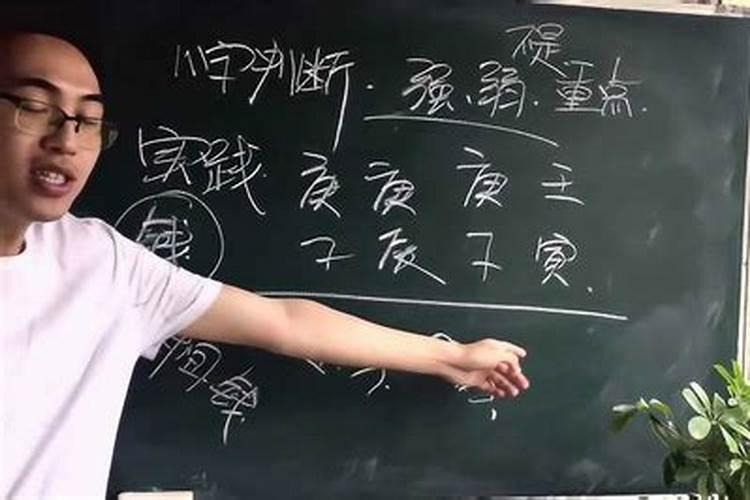 八字判断.强、弱.重点.
实践 庚 庚 庚 壬
钱 子 辰 子 寅.